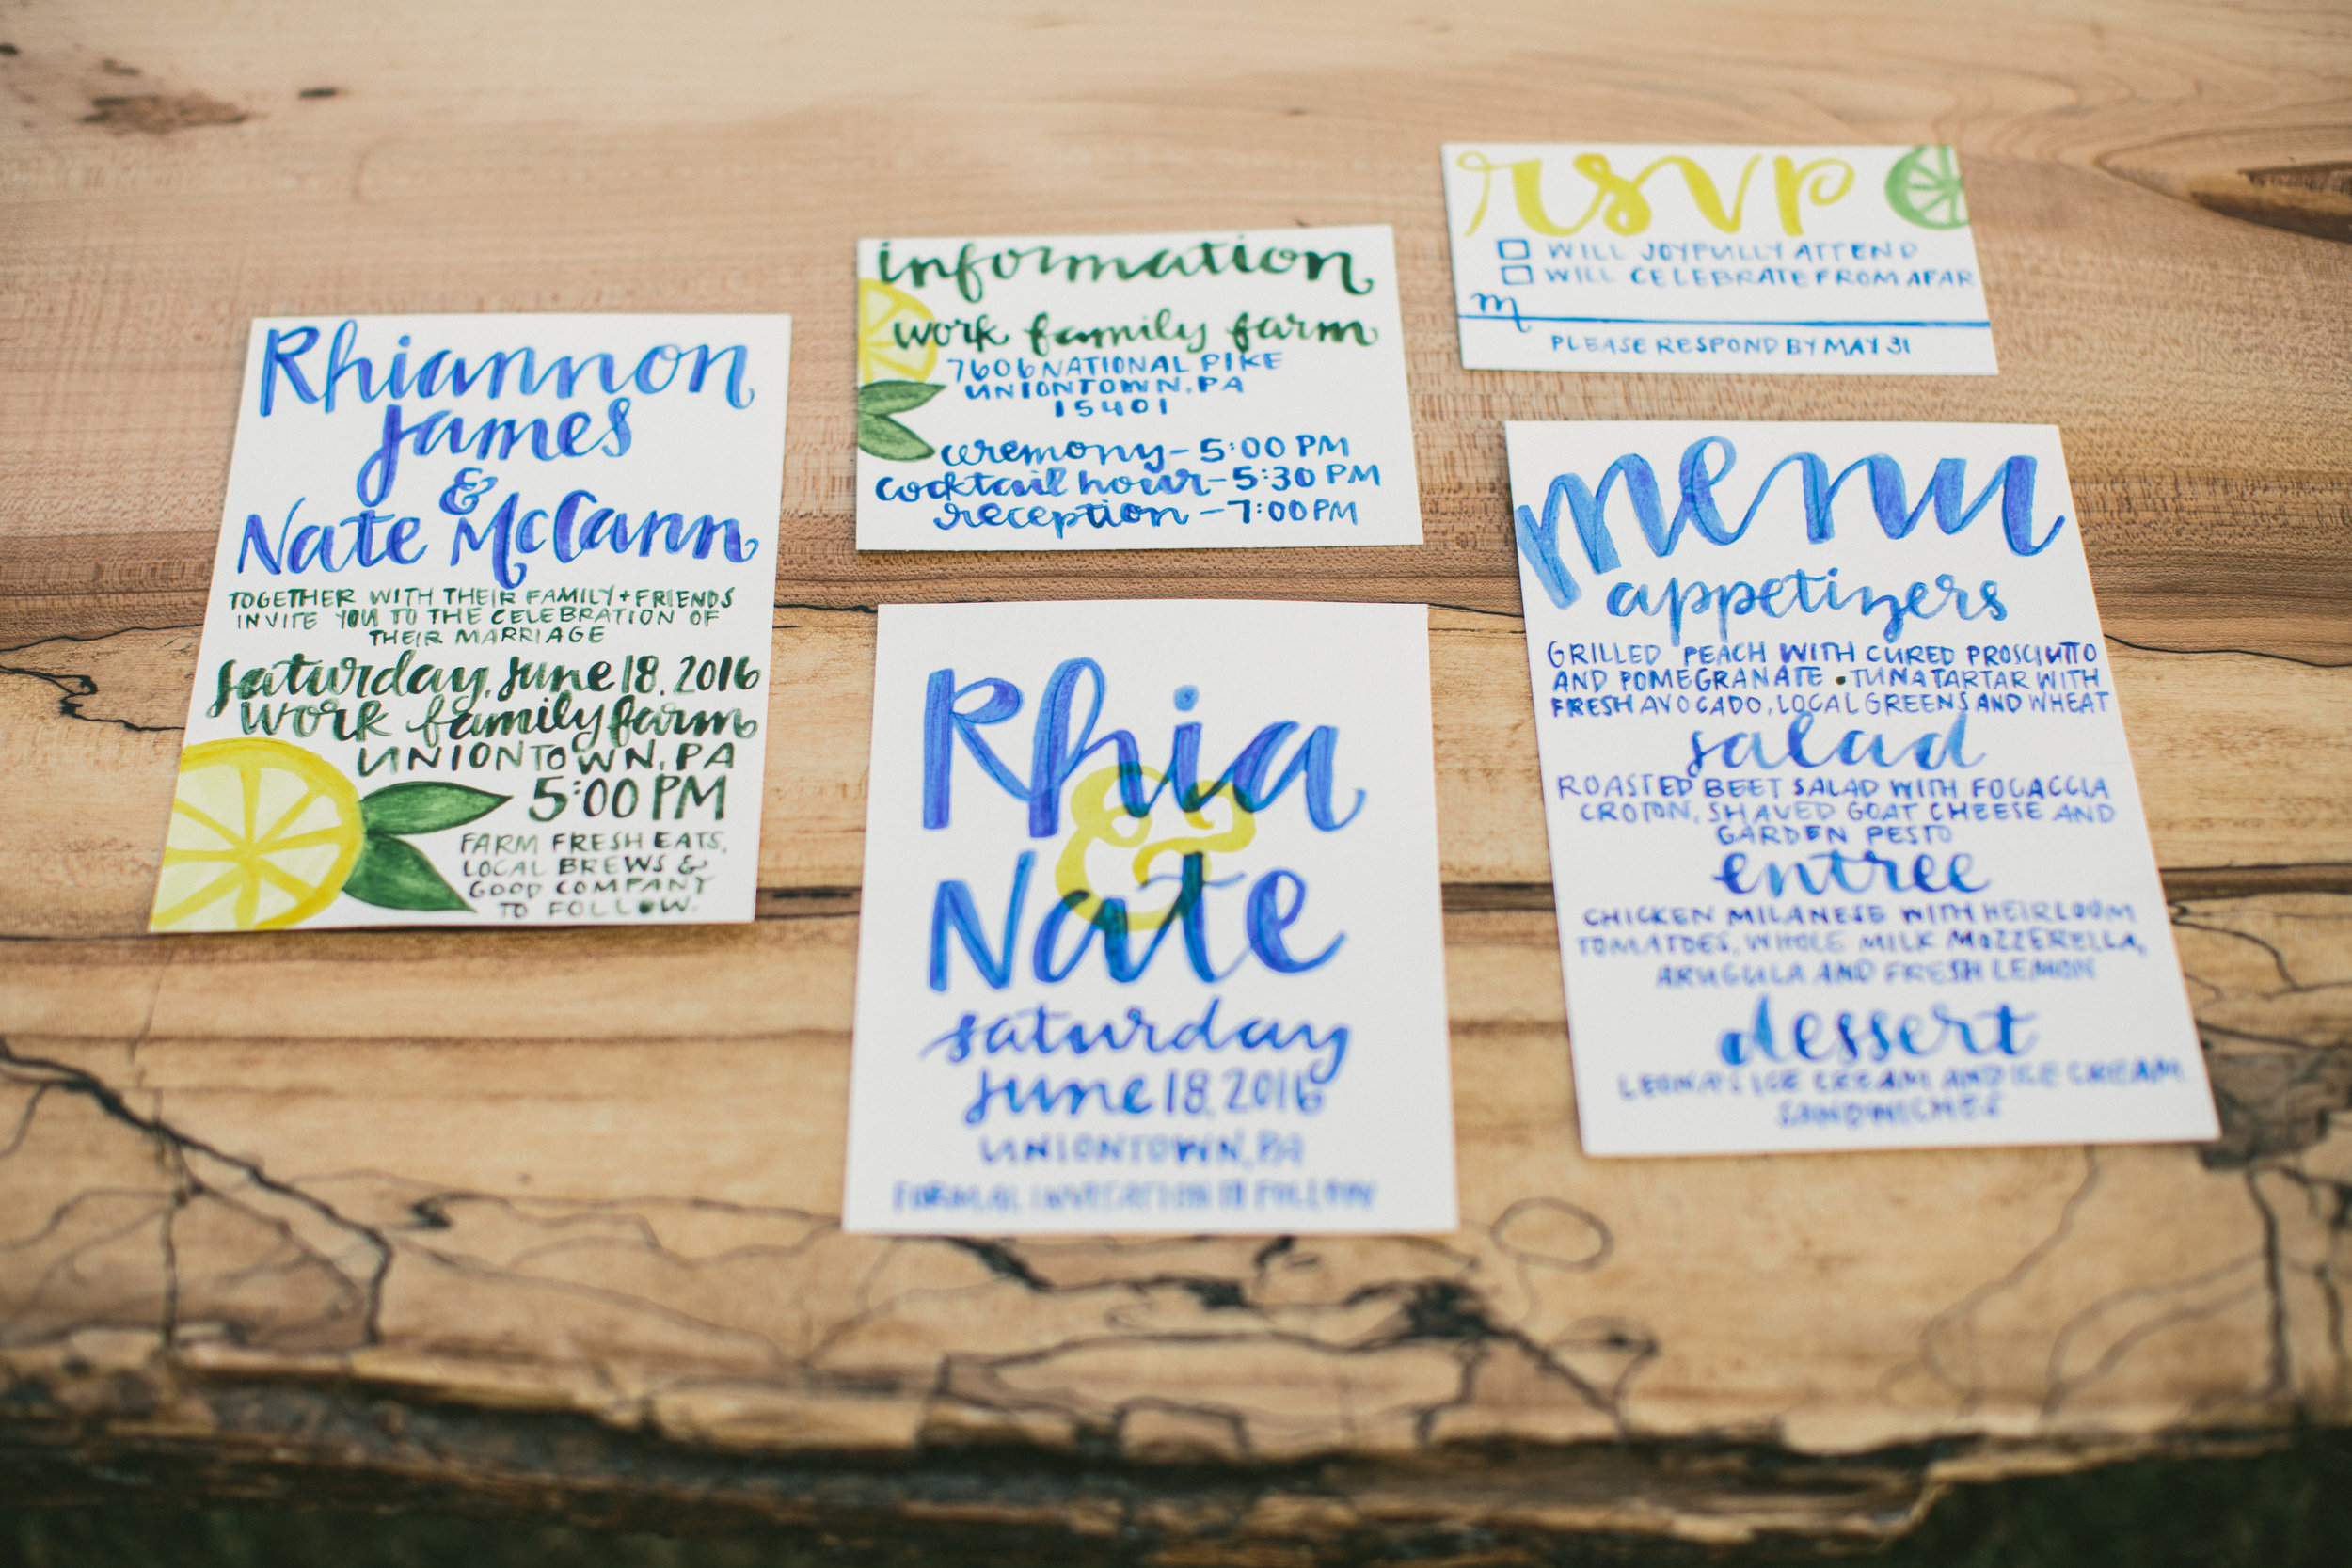 Rhiannon
James
&
Nate McCann
TOGETHER WITH THEIR FAMILY + FRIENDS
INVITE YOU TO THE CELEBRATION OF
THEIR MARRIAGE
saturday, june 18, 2016
work family farm
UNIONTOWN, PA
5:00 PM
FARM FRESH EATS,
LOCAL BREWS &
GOOD COMPANY
TO FOLLOW.
information
work family farm
7606 NATIONAL PIKE
UNIONTOWN, PA
15401
ceremony - 5:00 PM
cocktail hour - 5:30 PM
reception - 7:00 PM
Rhia
&
Nate
saturday
june 18, 2016
UNIONTOWN, PA
FORMAL INVITATION TO FOLLOW
rsvp
WILL JOYFULLY ATTEND
WILL CELEBRATE FROM AFAR
m
PLEASE RESPOND BY MAY 31
menu
appetizers
GRILLED PEACH WITH CURED PROSCIUTTO
AND POMEGRANATE • TUNA TARTAR WITH
FRESH AVOCADO, LOCAL GREENS AND WHEAT
salad
ROASTED BEET SALAD WITH FOCACCIA
CROTON, SHAVED GOAT CHEESE AND
GARDEN PESTO
entree
CHICKEN MILANESE WITH HEIRLOOM
TOMATOES, WHOLE MILK MOZZERELLA,
ARUGULA AND FRESH LEMON
dessert
LEONA'S ICE CREAM AND ICE CREAM
SANDWICHES